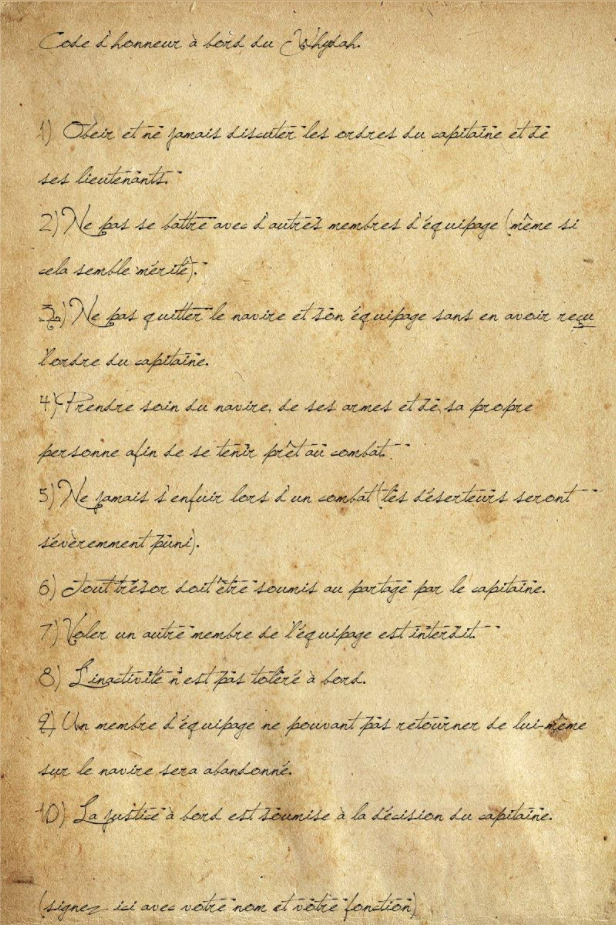 Code d'honneur à bord du Whydah.
1) Obeir et ne jamais discuter les ordres du capitaine et de
ses lieutenants.
2) Ne pas se battre avec d'autres membres d'équipage (même si
cela semble mérité).
3) Ne pas quitter le navire et son équipage sans en avoir reçu
l'ordre du capitaine.
4) Prendre soin du navire, de ses armes et de sa propre
personne afin de se tenir prêt au combat.
5) Ne jamais s'enfuir lors d'un combat (les déserteurs seront
sévèremment puni).
6) Tout trésor doit être soumis au partage par le capitaine.
7) Voler un autre membre de l'équipage est interdit.
8) L'inactivité n'est pas toléré à bord.
9) Un membre d'équipage ne pouvant pas retourner de lui-même
sur le navire sera abandonné.
10) La justice à bord est soumise à la décision du capitaine.
(signez ici avec votre nom et votre fonction)